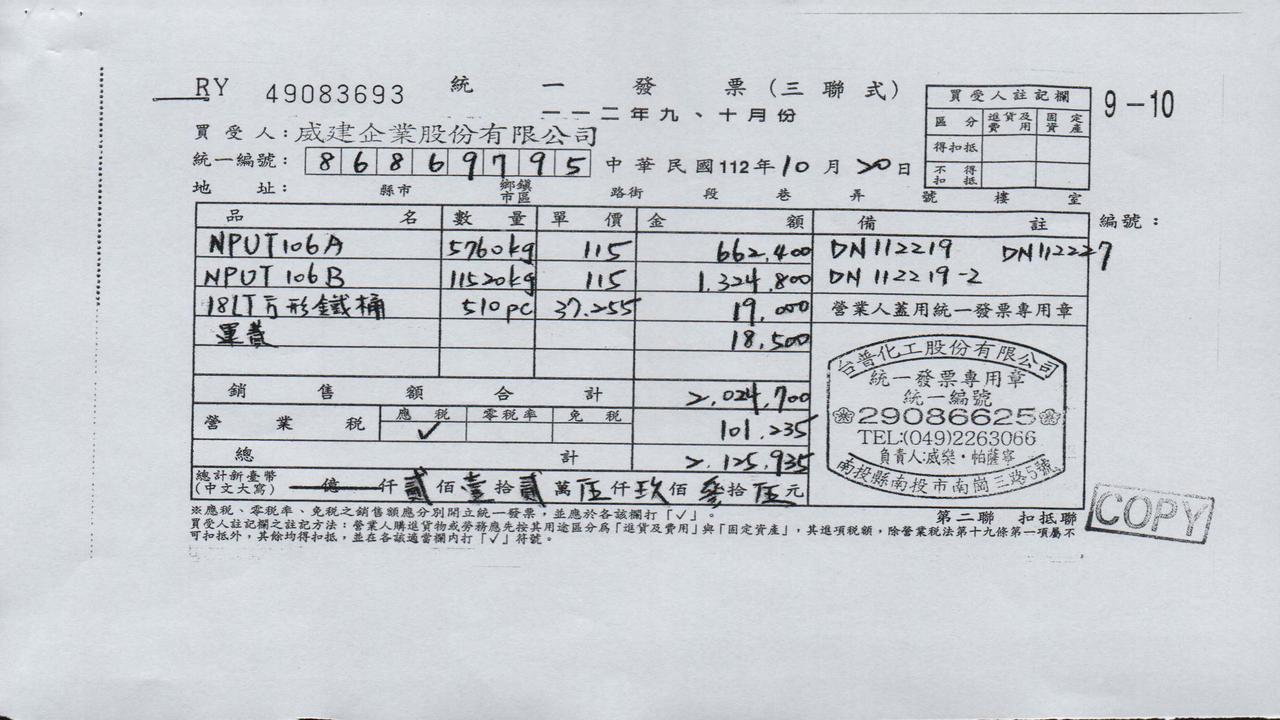 RY 49083693 統一發票(三聯式)
一一二年九、十月份
9-10
買受人註記欄
區分 進貨及費用 固定資產
得扣抵
不得扣抵
買受人：威建企業股份有限公司
統一編號：86869795 中華民國112年10月20日
地址： 縣市 鄉鎮市區 路街 段 巷 弄 號 樓 室
品名 數量 單價 金額 備註 編號：
NPUT106A 5760kg 115 662,400 DN112219 DN112227
NPUT106B 11520kg 115 1,324,800 DN112219-2
18LT方形鐵桶 510pc 37.255 19,000 營業人蓋用統一發票專用章
運費 18,500
銷售額合計 2,024,700
營業稅 應稅 ✓ 零稅率 免稅 101,235
總計 2,125,935
總計新臺幣(中文大寫) 億 仟 貳 佰 壹 拾 貳 萬 伍 仟 玖 佰 參 拾 伍 元
台普化工股份有限公司
統一發票專用章
統一編號
29086625
TEL:(049)2263066
負責人:威樂・帕薩寧
南投縣南投市南崗三路5號
※應稅、零稅率、免稅之銷售額應分別開立統一發票，並應於各該欄打「✓」。
第二聯 扣抵聯
COPY
買受人註記欄之註記方法：營業人購進貨物或勞務應先按其用途區分為「進貨及費用」與「固定資產」，其進項稅額，除營業稅法第十九條第一項屬不
可扣抵外，其餘均得扣抵，並在各該適當欄內打「✓」符號。